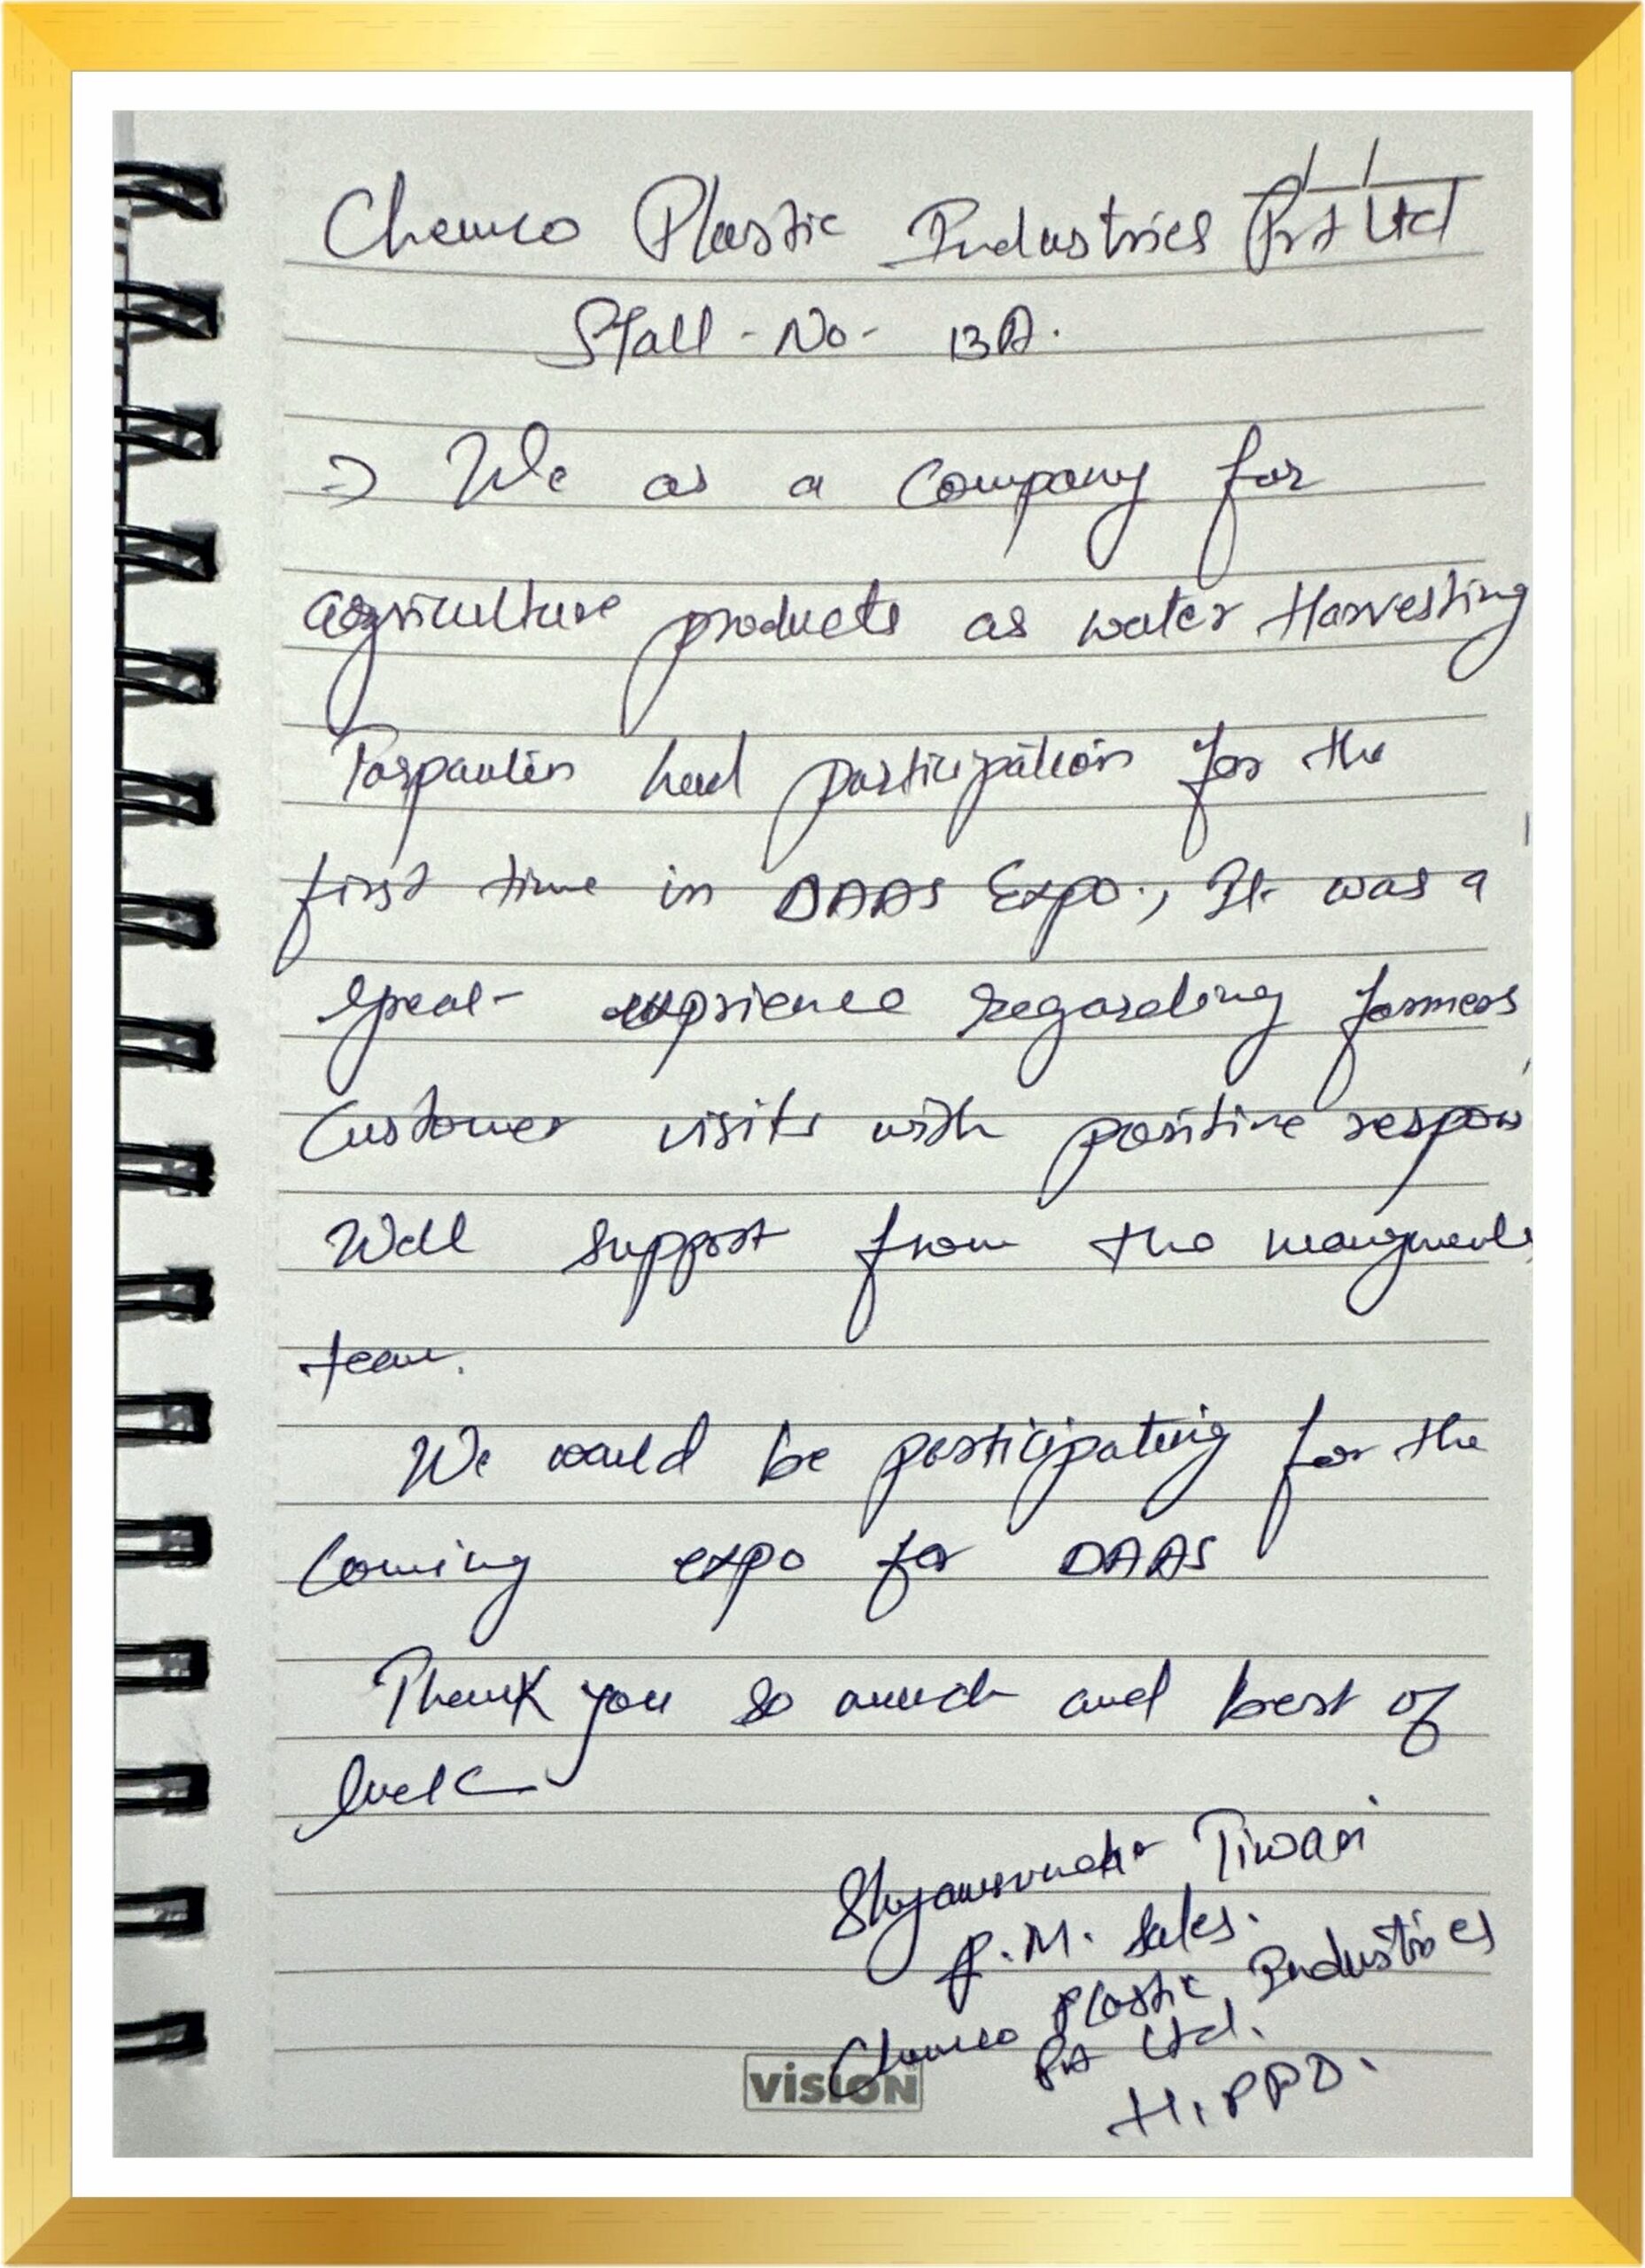 Chemco Plastic Industries Pvt Ltd
Stall - No - 13A.
=> We as a company for
agriculture products as water Harvesting
Tarpaulin had participation for the
first time in DAAS Expo., It was a
great exprience regarding farmers
Customer visits with positive respons
Well support from the mangment
team.
We would be participating for the
Coming expo for DAAS
Thank you so much and best of
luck
Shyamsundar Tiwari
G.M. Sales.
Chemco Plastic Industries
Pvt Ltd.
HIPPO.
vision